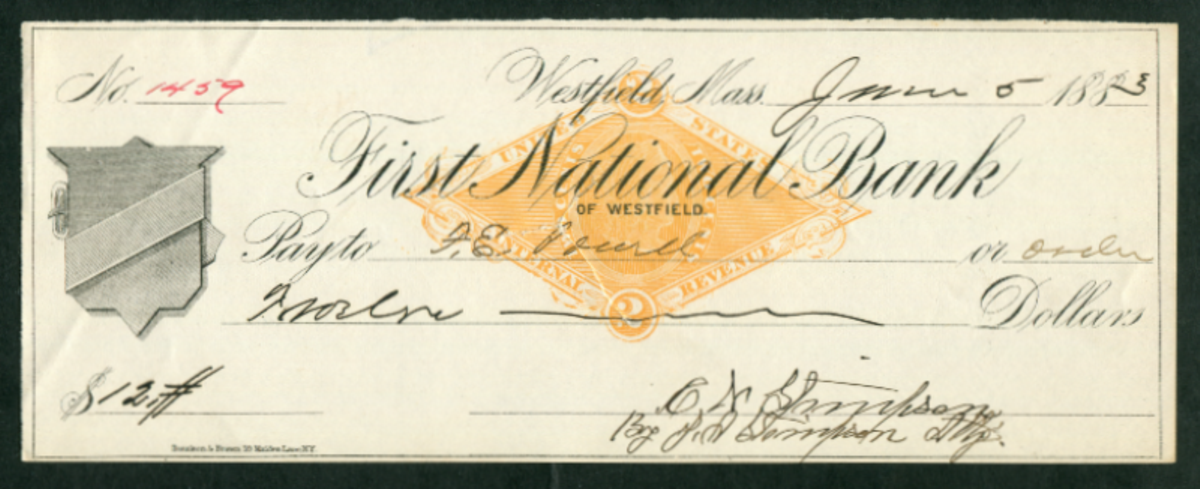 No. 1459
Westfield, Mass. June 5 1883
UNITED STATES
First National Bank
OF WESTFIELD
Pay to F. E. or order
INTERNAL REVENUE
2
Twelve Dollars
$ 12.#
C. W. Simpson
By J. Simpson Atty.
Maiden Lane N.Y.